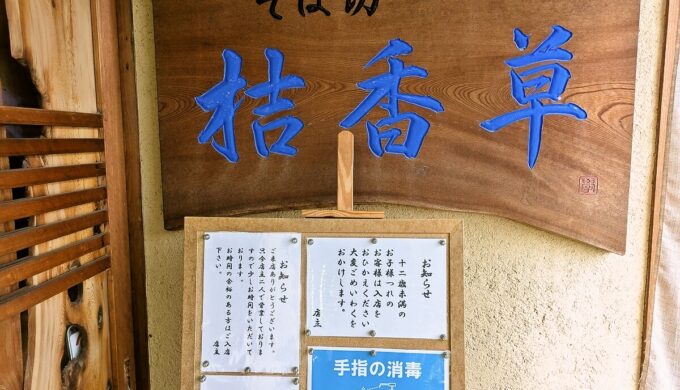 そば切
桔香草
お知らせ
十二歳未満の
お子様つれの
お客様は入店を
おひかえください
大変ごめいわくを
おかけします。
店主
お知らせ
ご来店ありがとうございます。
只今店主二人で営業しておりま
すので少しお時間をいただいて
おります。
お時間の余裕のある方はご入店
下さい。
店主
手指の消毒